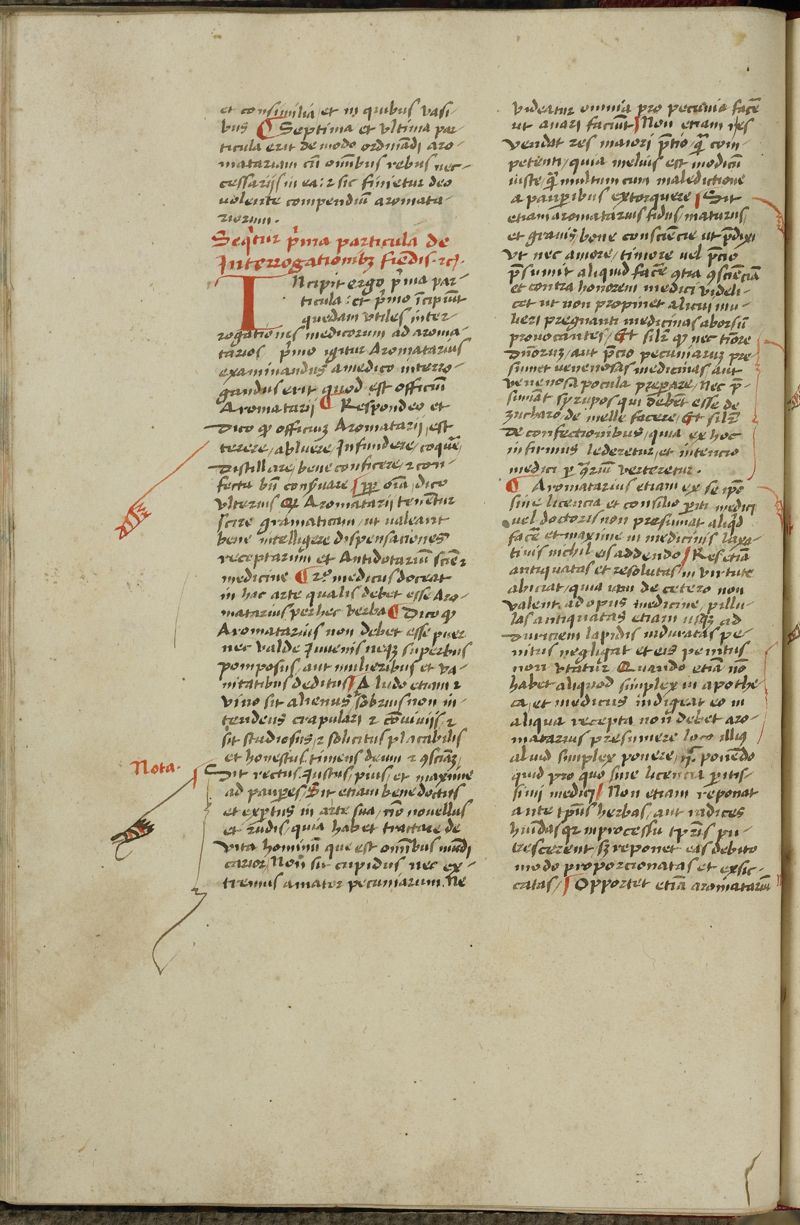 et consimilia et in quibus vasi-
bus ¶ Septima et vltima par
ticula erit de modo ordinādi aro-
matarium cū om̄ibus rebus nec-
cessarijs in ea: ⁊ sic finietur deo
volente compendiū aromata
riorum.
Seqtur pma particula de
Interrogationibꝫ fiēdis. rc.
INcipit ergo pma par-
ticula: et pmo īcipiūt
quedam vtiles inter-
rogationes medicorum ad aroma-
tarios pmo igitur Aromatarius
examinandus a medico interro-
gandus erit quod est officiū
Aromatarij ¶ Respondeo et
Dico ꝙ officiuꝫ Aromatarij est
terere, abluere, Infundere, coquē
Distillare, bene conficere, ⁊ con-
fecta bn̄ conseruare oīa, dico
vlterius Aromatarij tenētur
scire gramaticam, ut valeant
bene intelligere dispensationes
receptarum et Antidotariū sciē⁊
medicine ¶ medicus doceat
in hac arte qualis debet esse Aro-
matarius per hec verba ¶ Dico ꝙ
Aromatarius non debet esse puer
nec valde Iuvenis neqꝫ superbus
pomposus, aut mulieribus et va-
nitatibus deditus A ludo etiam ⁊
vino sit alienus, sobrius non in-
tendens crapulari ⁊ cōuiuijs ⁊
sit studiosus ⁊ solicitus placabilis
et honestus, timens deum ⁊ ꝯsciam,
Nota.
Sit rectus, Iustus, pius, et maxime
ad paupes Sit etiam bene doctus
et exptus in arte sua, nō nouellus
et rudis, quia habet tractare de
vita hominū que est om̄ibus mūdi
carior Non sit cupidus nec ex-
tremus amator pecuniarum. Ne
videatur omnia pro pecunia facē
ut auari faciūt Non etiam res
vendat res maiori ptio, ꝗ com-
petenti, quia melius est modicū
iuste, ꝗ multum cum maledictione
a pauperibus extorquere Sit
etiam aromatarius fidus, maturus,
et grauis, bene consciēcie ut pdixi
vt nec amore, timore uel pcio
psumat aliquid facē ꝯtra ꝯsciēciā
et contra honorem medici videli-
cet ut non propinet alicui mu-
lieri pregnanti medicinas aborsū
prouocantes, Et silr ꝙ nec timore
Dnoruꝫ, aut pcio pecuniaruꝫ pre
sumet venenosas medicinas aut
venenosa pocula prepare, Nec p-
sumat syrupos qui debēt esse de
zucharo de melle facere, Et silr
De confectionibus, quia ex hoc
infirmus lederetur, et intencio
medici verteretur.
¶ Aromatarius etiam ex se ipo
sine licencia et consilio piti medici
uel doctoris non presumat aliqd
facē et maxime in medicinis laxa-
tiuis nichil eis addendo Res etiā
antiquatas et resolutas in virtute
abiciat, quia de cetero non
valent, ad opus medicine, pillu-
las antiquatas etiam usqꝫ ad
Duriciem lapidis induratas pe-
nitus negligat et eis penitus
non vtatur Quando etiā nō
habet aliquod simplex in apothe
ca, et medicus indigeat eo in
aliqua recepta non debet aro-
matarius presumere loco illiꝰ
aliud simplex ponere, ponēdo
quid pro quo sine licencia pitis-
simi medici Non etiam reponat
ante tpus herbas, aut radices
humidas processu tpris pu-
trescerent, reponet eas debito
modo proporcionatas et exsic-
catas, Opportet etiā aromatariū